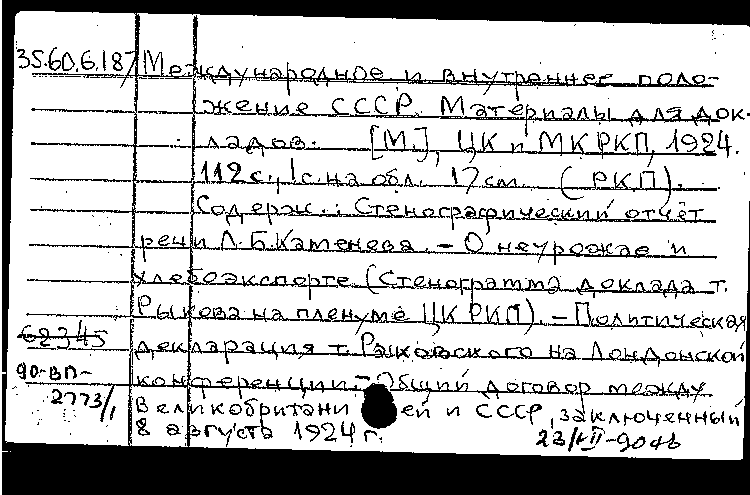 35.60.6.187 Международное и внутреннее поло-
жение СССР. Материалы для док-
ладов. [М.], ЦК и МК РКП, 1924.
112 с., 1 с. на обл. 17 см. (РКП).
Содерж.: Стенографический отчёт
речи Л.Б.Каменева. – О неурожае и
хлебоэкспорте (Стенограмма доклада т.
Рыкова на пленуме ЦК РКП). – Политическая
62345 декларация т. Раковского на Лондонской
90-ВП- конференции. – Общий договор между
2773/1 Великобритани ей и СССР, заключенный
8 августа 1924 г.